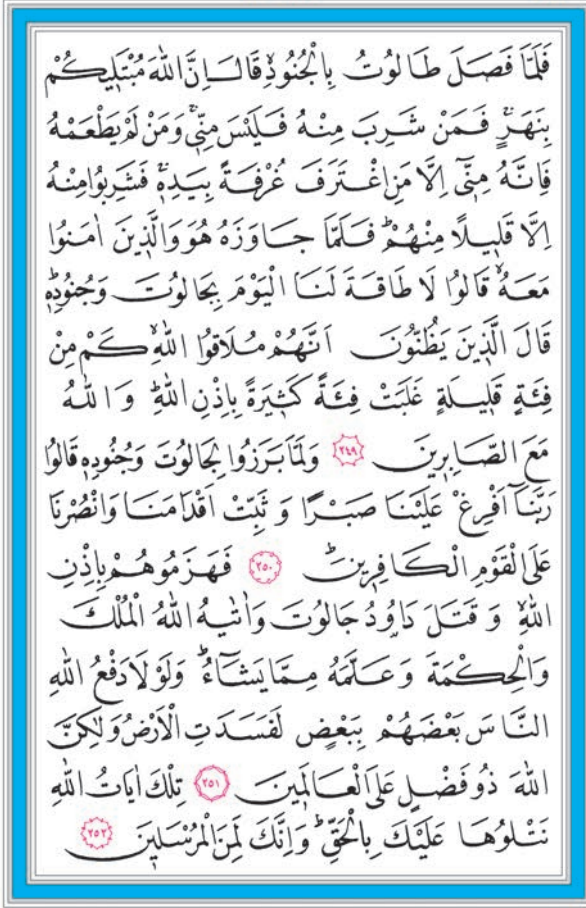 فَلَمَّا فَصَلَ طَالُوتُ بِالْجُنُودِۙ قَالَ اِنَّ اللّٰهَ مُبْتَلٖيكُمْ
بِنَهَرٍۚ فَمَنْ شَرِبَ مِنْهُ فَلَيْسَ مِنّٖيۚ وَمَنْ لَمْ يَطْعَمْهُ
فَاِنَّهُ مِنّٖٓي اِلَّا مَنِ اغْتَرَفَ غُرْفَةً بِيَدِهٖۚ فَشَرِبُوا مِنْهُ
اِلَّا قَلٖيلًا مِنْهُمْؕ فَلَمَّا جَاوَزَهُ هُوَ وَالَّذٖينَ اٰمَنُوا
مَعَهُۙ قَالُوا لَا طَاقَةَ لَنَا الْيَوْمَ بِجَالُوتَ وَجُنُودِهٖؕ
قَالَ الَّذٖينَ يَظُنُّونَ اَنَّهُمْ مُلَاقُوا اللّٰهِۙ كَمْ مِنْ
فِئَةٍ قَلٖيلَةٍ غَلَبَتْ فِئَةً كَثٖيرَةً بِاِذْنِ اللّٰهِؕ وَاللّٰهُ
مَعَ الصَّابِرٖينَ ﴿٢٤٩﴾ وَلَمَّا بَرَزُوا لِجَالُوتَ وَجُنُودِهٖ قَالُوا
رَبَّنَٓا اَفْرِغْ عَلَيْنَا صَبْرًا وَثَبِّتْ اَقْدَامَنَا وَانْصُرْنَا
عَلَى الْقَوْمِ الْكَافِرٖينَؕ ﴿٢٥٠﴾ فَهَزَمُوهُمْ بِاِذْنِ
اللّٰهِ وَقَتَلَ دَاوُ۫دُ جَالُوتَ وَاٰتٰيهُ اللّٰهُ الْمُلْكَ
وَالْحِكْمَةَ وَعَلَّمَهُ مِمَّا يَشَٓاءُؕ وَلَوْلَا دَفْعُ اللّٰهِ
النَّاسَ بَعْضَهُمْ بِبَعْضٍ لَفَسَدَتِ الْاَرْضُ وَلٰكِنَّ
اللّٰهَ ذُو فَضْلٍ عَلَى الْعَالَمٖينَ ﴿٢٥١﴾ تِلْكَ اٰيَاتُ اللّٰهِ
نَتْلُوهَا عَلَيْكَ بِالْحَقِّؕ وَاِنَّكَ لَمِنَ الْمُرْسَلٖينَ ﴿٢٥٢﴾